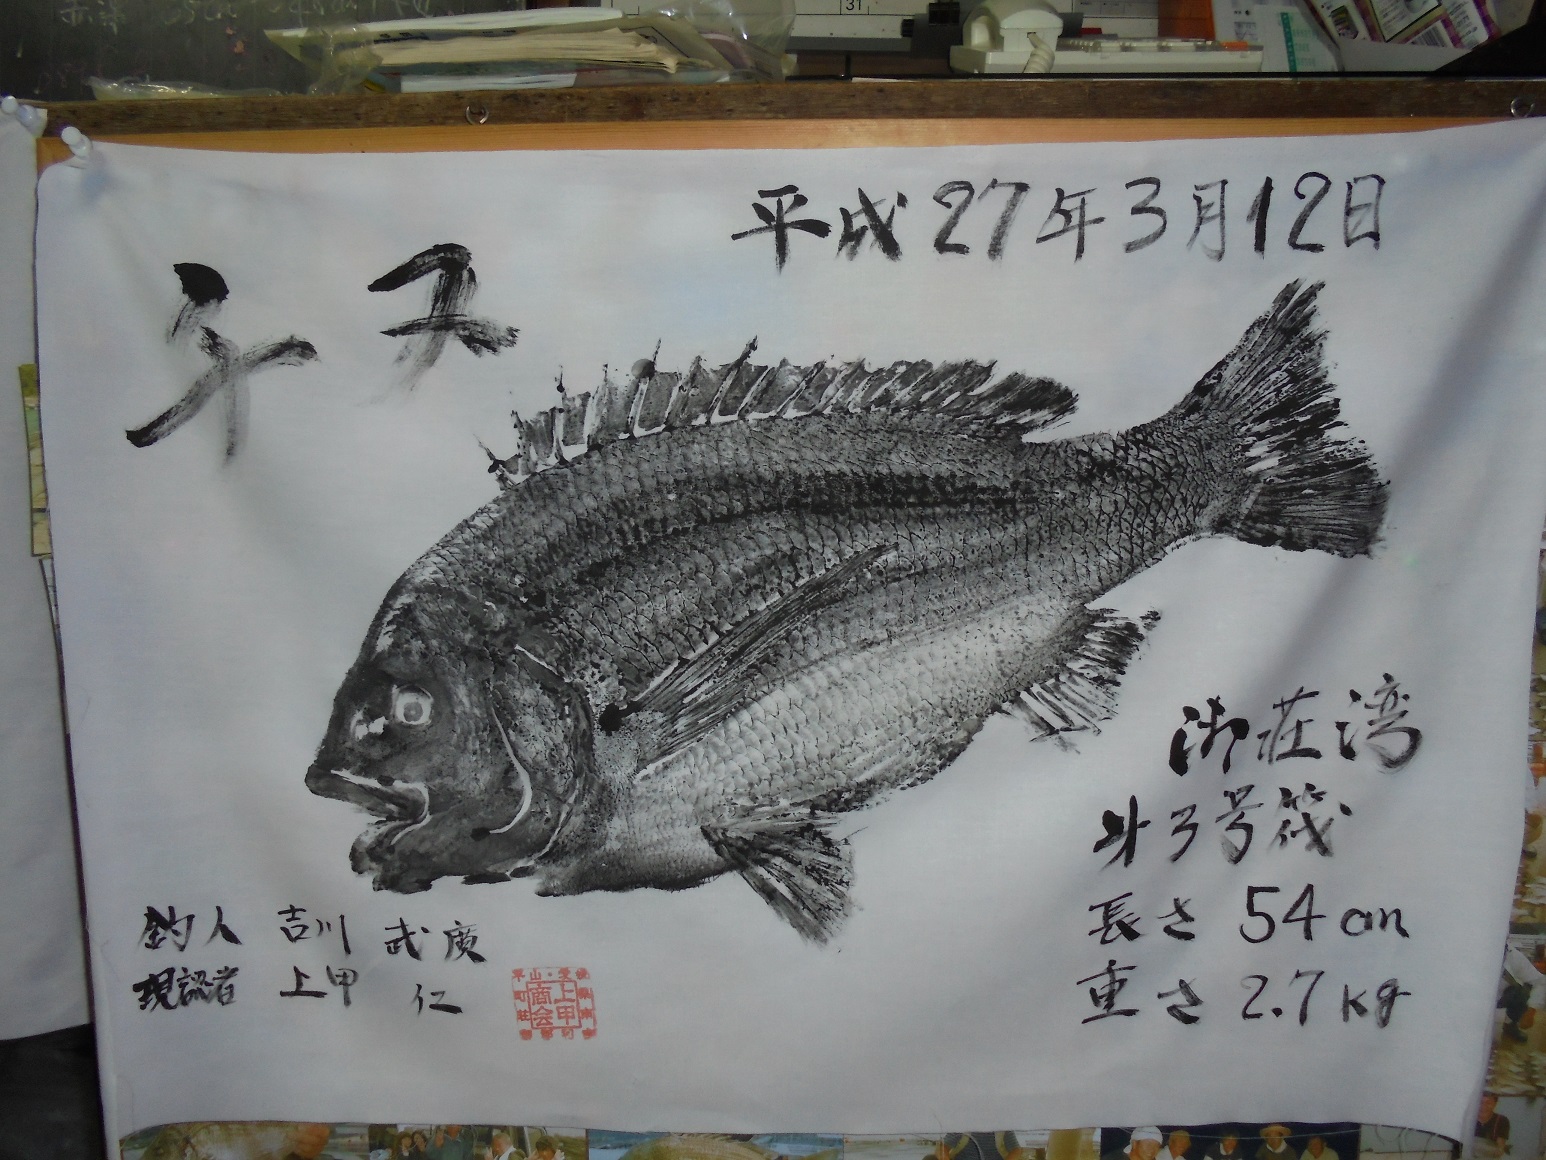 31
平成27年3月12日
チヌ
御荘湾
才3号筏
長さ 54cm
重さ 2.7kg
釣人 吉川 武廣
現認者 上甲 仁
上甲
商会